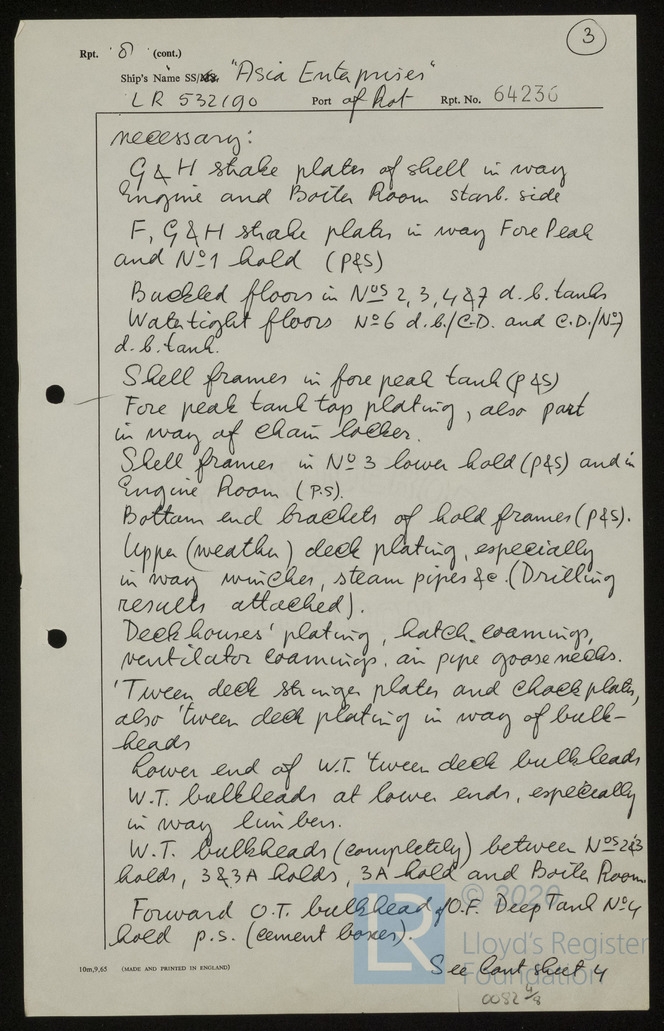 3
Rpt. 8 (cont.)
Ship's Name SS/MS. "Asia Enterprises"
LR 532190 Port of Rot Rpt. No. 64236
necessary:
G & H strake plates of shell in way
Engine and Boiler Room starb. side
F, G & H strake plates in way Fore Peak
and Nº1 hold (P&S)
Buckled floors in Nos 2, 3, 4 & 7 d.b. tanks
Watertight floors Nº6 d.b./C.D. and C.D./Nº7
d.b. tank.
Shell frames in fore peak tank (P&S)
Fore peak tank top plating, also part
in way of chain locker.
Shell frames in Nº 3 lower hold (P&S) and in
Engine Room (P.S).
Bottom end brackets of hold frames (P&S).
Upper (weather) deck plating, especially
in way winches, steam pipes &c. (Drilling
results attached).
Deckhouses' plating, hatch coamings,
ventilator coamings, air pipe goosenecks.
'Tween deck stringer plates and chock plates,
also 'tween deck plating in way of bulk-
heads
Lower end of W.T. 'tween deck bulkheads
W.T. bulkheads at lower ends, especially
in way limbers.
W.T. bulkheads (completely) between Nos 2&3
holds, 3 & 3A holds, 3A hold and Boiler Room
Forward O.T. bulkhead of O.F. Deep Tank Nº4
hold p.s. (cement boxes).
See Cont sheet 4
10m,9,65 (MADE AND PRINTED IN ENGLAND)
0082 4/8
LR
© 2020
Lloyd's Register
Foundation